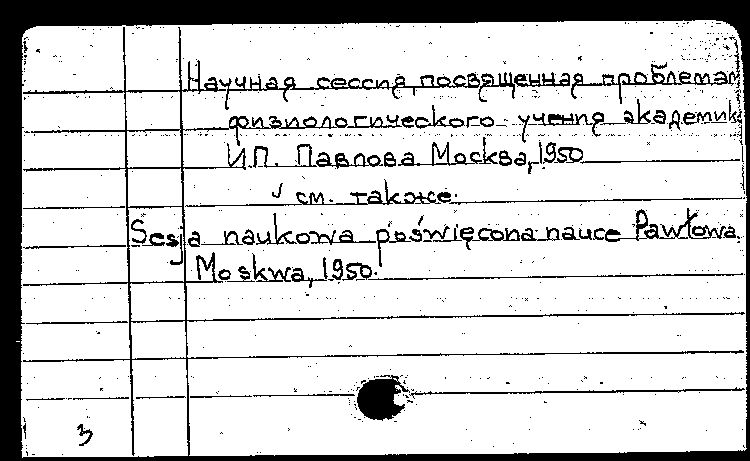 Научная сессия, посвященная проблемам
физиологического учения академик
И.П. Павлова. Москва, 1950
см. также:
Sesja naukowa poświęcona nauce Pawłowa.
Moskwa, 1950.
3